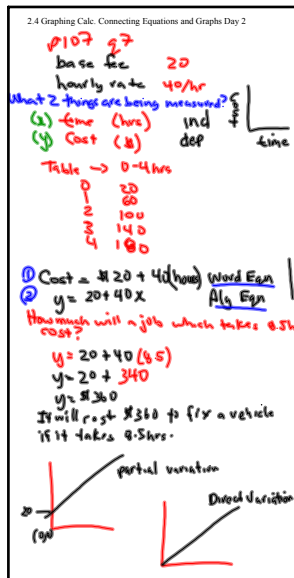 2.4 Graphing Calc. Connecting Equations and Graphs Day 2
p107 q7
base fee 20
hourly rate 40/hr
What 2 things are being measured?
(x) time (hrs) ind
(y) Cost ($) dep
Cost
time
Table → 0-4hrs
0 20
1 60
2 100
3 140
4 180
① Cost = $20 + 40(hours) Word Eqn
② y = 20+40x Alg Eqn
How much will a job which takes 8.5h
cost?
y = 20 + 40 (8.5)
y = 20 + 340
y = $360
It will cost $360 to fix a vehicle
if it takes 8.5hrs.
partial variation
20
(0,0)
Direct Variation